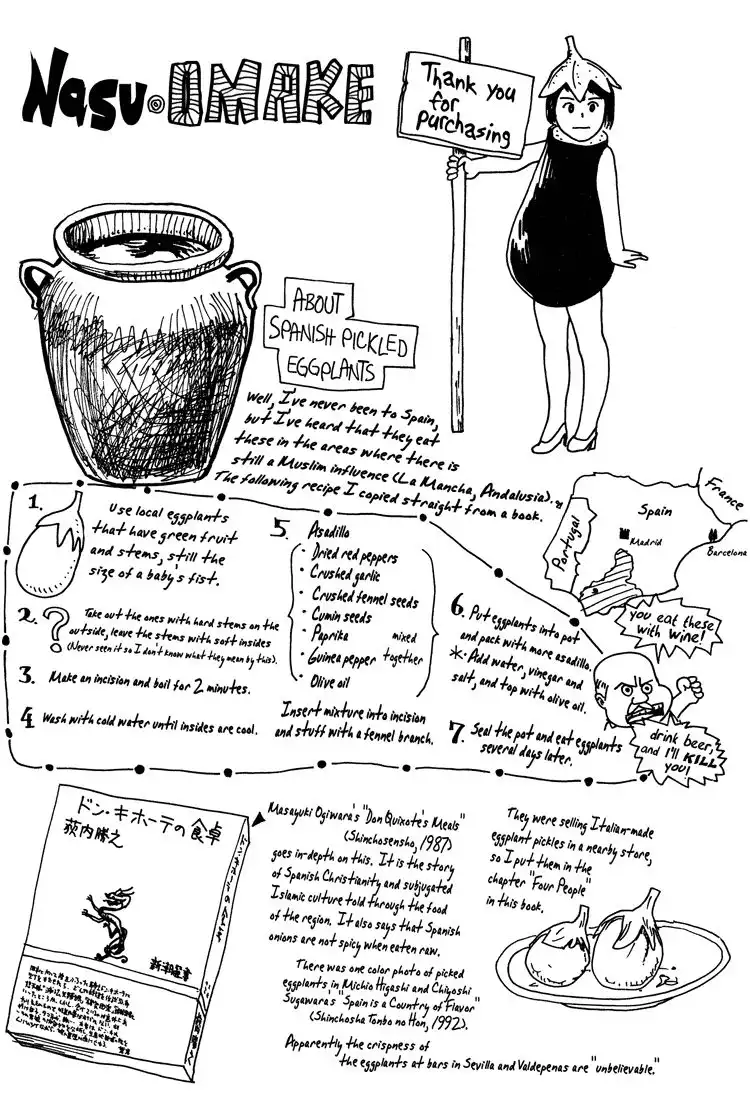 Nasu◎OMAKE
Thank you
for
purchasing
ABOUT
SPANISH PICKLED
EGGPLANTS
Well, I've never been to Spain,
but I've heard that they eat
these in the areas where there is
still a Muslim influence (La Mancha, Andalusia).
The following recipe I copied straight from a book.
1.
Use local eggplants
that have green fruit
and stems, still the
size of a baby's fist.
2.?
Take out the ones with hard stems on the
outside, leave the stems with soft insides
(Never seen it so I don't know what they mean by this).
3. Make an incision and boil for 2 minutes.
4 Wash with cold water until insides are cool.
5. Asadillo
・Dried red peppers
・Crushed garlic
・Crushed fennel seeds
・Cumin seeds
・Paprika
・Guinea pepper
・Olive oil
mixed
together
Insert mixture into incision
and stuff with a fennel branch.
6. Put eggplants into pot
and pack with more asadillo.
*・Add water, vinegar and
salt, and top with olive oil.
7. Seal the pot and eat eggplants
several days later.
France
Spain
Portugal
Madrid
Barcelona
you eat these
with wine!
drink beer,
and I'll KILL
you!
ドン・キホーテの食卓
荻内勝之
新潮選書
Masayuki Ogiwara's "Don Quixote's Meals"
(Shinchosensho, 1987)
goes in-depth on this. It is the story
of Spanish Christianity and subjugated
Islamic culture told through the food
of the region. It also says that Spanish
onions are not spicy when eaten raw.
There was one color photo of picked
eggplants in Michio Higashi and Chiyoshi
Sugawara's "Spain is a Country of Flavor"
(Shinchosha Tonbo no Hon, 1992).
Apparently the crispness of
the eggplants at bars in Sevilla and Valdepenas are "unbelievable."
They were selling Italian-made
eggplant pickles in a nearby store,
so I put them in the
chapter "Four People"
in this book.